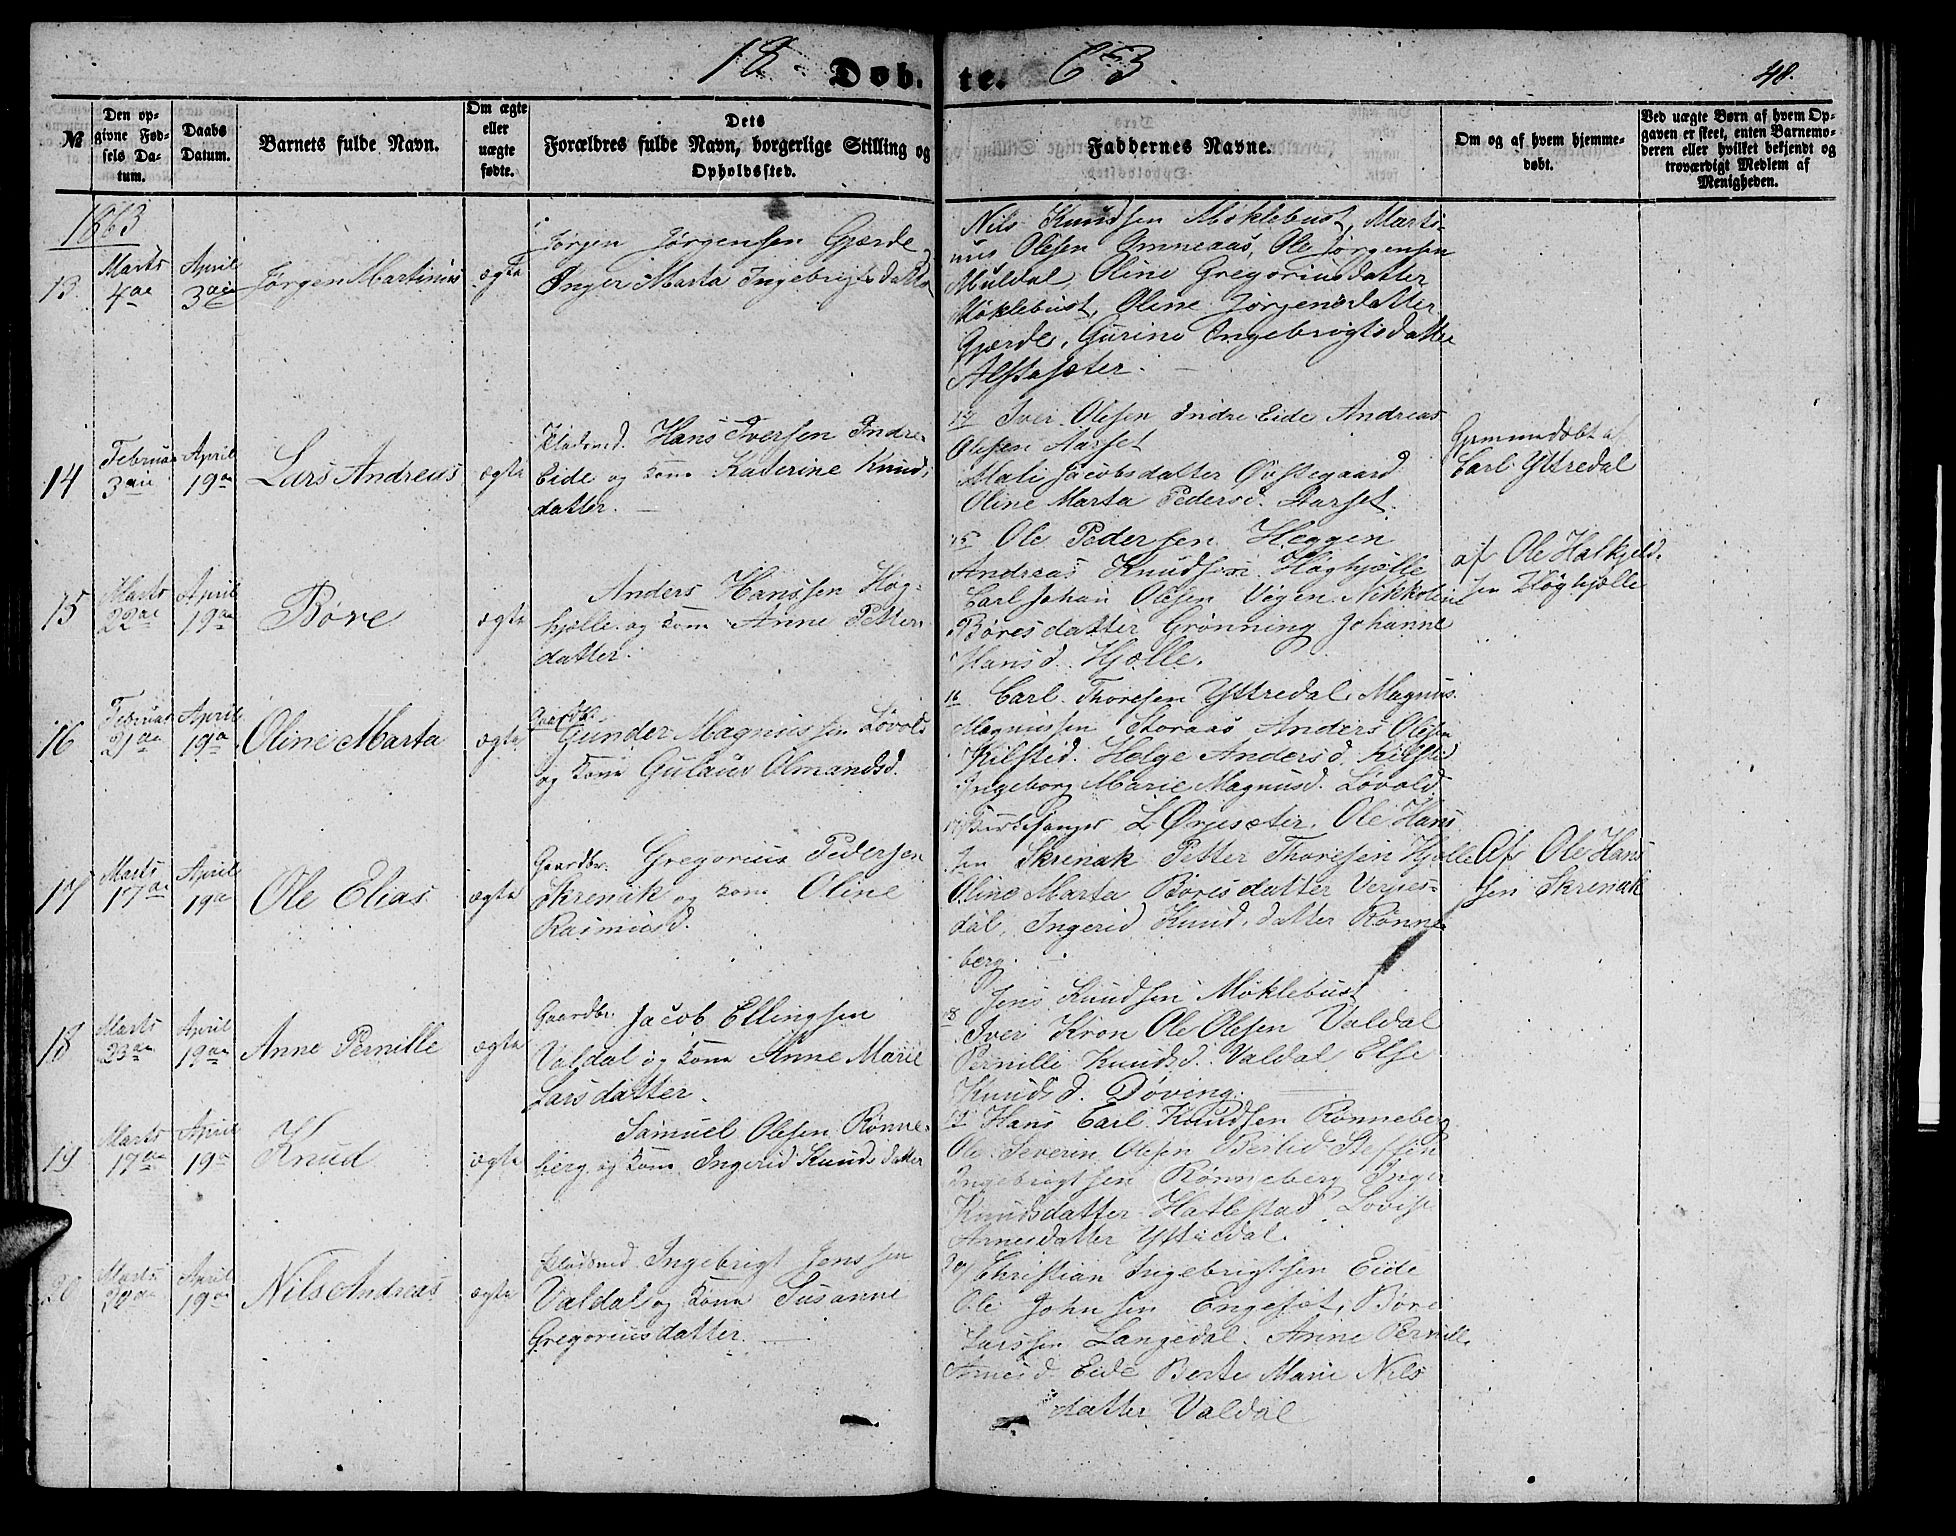 18 Døb. te. 63. 48.
№
Den op-
givne Fød-
sels Da-
tum.
Daabs
Datum.
Barnets fulde Navn.
Om ægte
eller
uægte
fødte.
Dets
Forældres fulde Navn, borgerlige Stilling og
Opholdssted.
Faddernes Navne.
Om og af hvem hjemme-
døbt.
Ved uægte Børn af hvem Op-
gaven er skeet, enten Barnemo-
deren eller hvilket bekjendt og
troværdigt Medlem af
Menigheden.
1863
13
Marts
4de
April
3die
Jørgen Martinus
ægte
Jørgen Jørgensen Gjærde
Inger Marta Ingebrigtsdatter
Nils Knudsen Møklebust, Marti-
nus Olesen Omneaas, Ole Jørgensen
Muldal, Oline Gregoriusdatter
Møklebust, Oline Jørgensdatter
Gjærde, Gurine Ingebrigtsdatter
Alstasæter.
14
Februar
3die
April
19de
Lars Andreas
ægte
Pladsmd. Hans Iversen Indre
Eide og Kone Katerine Knuds
datter.
14 Iver Olesen Indre Eide Andreas
Olesen Aarset
Mali Jacobsdatter Østegaard
Oline Marta Pedersd. Aarset.
Hjemmedøbt af
Carl Yttredal
15
Marts
22de
April
19de
Børe
ægte
Anders Hanssen Høg-
hjølle og Kone Anne Petter-
datter.
15 Ole Pedersen Heggen
Andreas Knudsen Høghjølle
Carl Johan Olesen Vegen Nikkoline
Børesdatter Grønning Johanne
Hansd. Hjølle.
af Ole Halkjeld-
sen Høghjølle
16
Februar
21de
April
19de
Oline Marta
ægte
Gaardbr.
Gunder Magnussen Løvold
og Kone Gulaug Olmandsd.
16 Carl Thoresen Yttredal, Magnus
Magnussen Storaas Anders Olesen
Kilstid. Helge Andersd. Kilstid
Ingeborg Marie Magnusd. Løvold.
17
Marts
17de
April
19de
Ole Elias
ægte
Gaardbr. Gregorius Pedersen
Skrenak og Kone Oline
Rasmusd.
17 Kirkesanger L Ørjesæter, Ole Hans
sen Skrenak Petter Thoresen Hjølle
Oline Marta Børesdatter Verpes-
dal, Ingerid Knudsdatter Rønne
berg.
Af Ole Hans
sen Skrenak
18
Marts
23de
April
19de
Anne Pernille
ægte
Gaardbr. Jacob Ellingsen
Valdal og Kone Anne Marie
Larsdatter.
18 Jens Knudsen Møklebust
Iver Kron Ole Olesen Valdal
Pernille Knudsd. Valdal Else
Knudsd. Døving.
19
Marts
17de
April
19de
Knud
ægte
Samuel Olesen Rønne-
berg og Kone Ingerid Knudsdatter
19 Hans Carl Knudsen Rønneberg
Ole Severin Olesen Berlid Steffen
Ingebrigtsen Rønneberg Inger
Knudsdatter Hatlestad Lovise
Arnesdatter Yttredal.
20
Marts
April
19de
Nils Andreas
ægte
Pladsmd Ingebrigt Jenssen
Valdal og Kone Susanne
Gregoriusdatter.
20/ Christian Ingebrigtsen Eide
Ole Johnsen Engeset, Børe
Larssen Langedal. Anne Pernille
Arnesd Eide Berte Marie Nils
datter Valdal